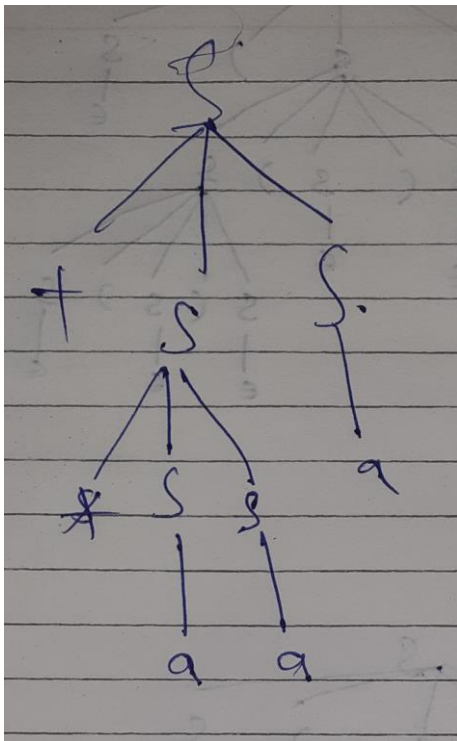 S
+ S S.
* S S a
a a